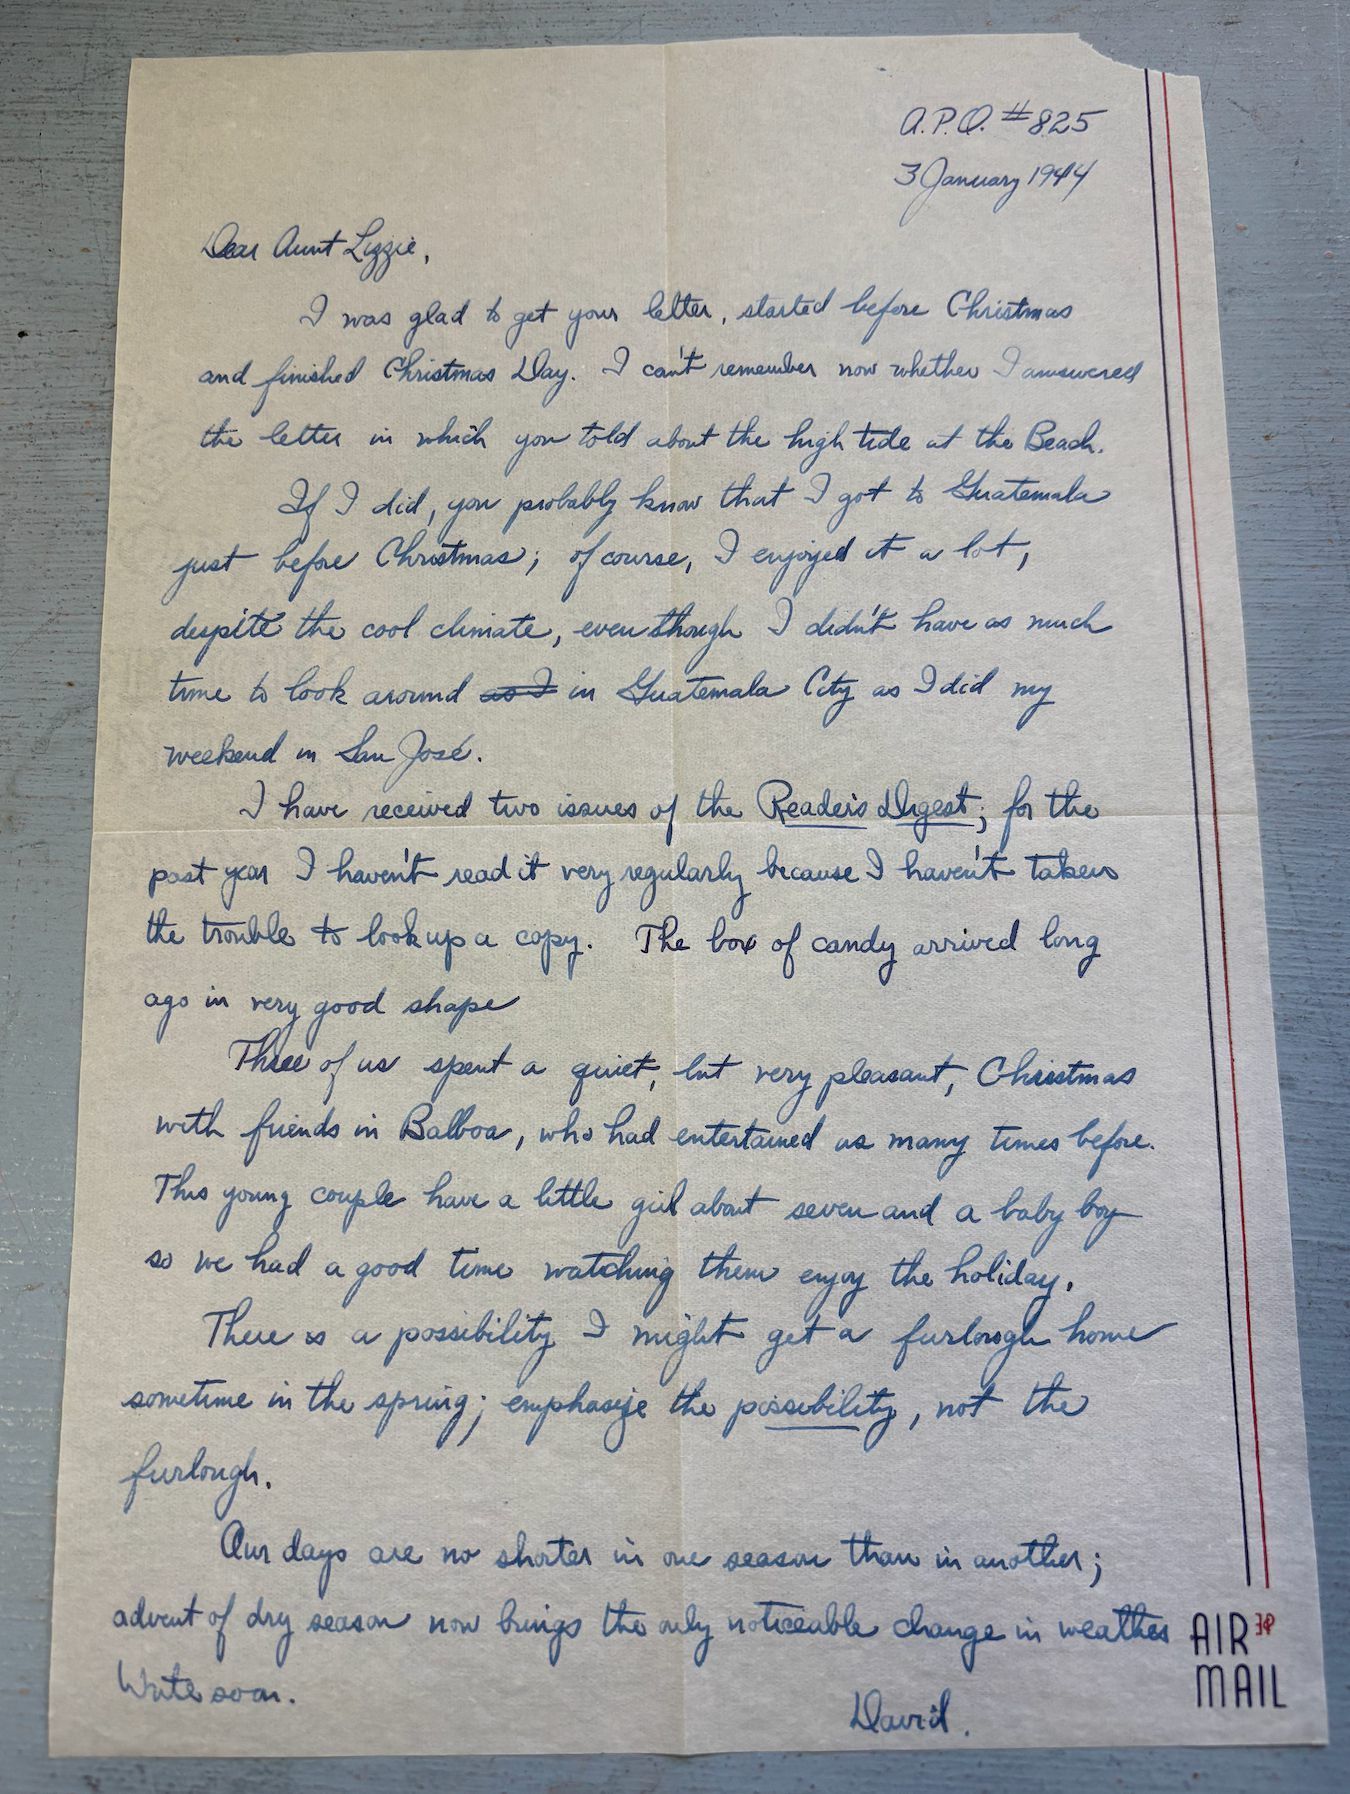 A.P.O. #825
3 January 1944
Dear Aunt Lizzie,
I was glad to get your letter, started before Christmas
and finished Christmas Day. I can't remember now whether I answered
the letter in which you told about the high tide at the Beach.
If I did, you probably know that I got to Guatemala
just before Christmas; of course, I enjoyed it a lot,
despite the cool climate, even though I didn't have as much
time to look around as I in Guatemala City as I did my
weekend in San José.
I have received two issues of the Reader's Digest; for the
past year I haven't read it very regularly because I haven't taken
the trouble to look up a copy. The box of candy arrived long
ago in very good shape
Three of us spent a quiet, but very pleasant, Christmas
with friends in Balboa, who had entertained us many times before.
This young couple have a little girl about seven and a baby boy
so we had a good time watching them enjoy the holiday.
There is a possibility I might get a furlough home
sometime in the spring; emphasize the possibility, not the
furlough.
Our days are no shorter in one season than in another;
advent of dry season now brings the only noticeable change in weather
Write soon.
David.
AIR
MAIL